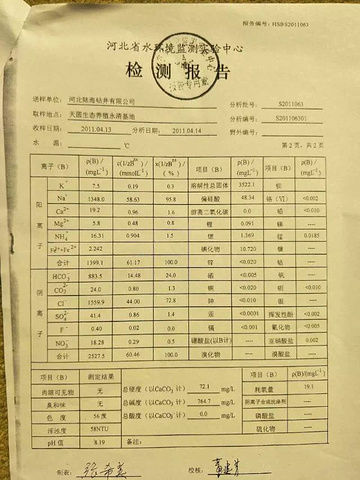 报告编号：HSBS2011063
河北省水环境监测实验中心
检测报告
送样单位：河北陆海钻井有限公司 分析批号： S2011063
取样地点：天圆生态养殖永清基地 分析编号： 201106301
收样日期：2011.04.13 分析日期：2011.04.14 野外编号：
水 温： ℃ 第2页，共2页
离子（B） ρ(B)/(mgL⁻¹) c(1/zBᶻ±)/(mmolL⁻¹) x(1/zBᶻ±)/(%) 项目（B） ρ(B)/(mgL⁻¹) 项目（B） ρ(B)/(mgL⁻¹)
阳离子
K⁺ 7.5 0.19 0.3 溶解性总固体 3522.1
Na⁺ 1348.0 58.63 95.8 偏硅酸 48.34 铬（Ⅵ） <0.002
Ca²⁺ 19.2 0.96 1.6 游离二氧化碳 0.0 铅 <0.010
Mg²⁺ 5.8 0.48 0.8 锂 0.091 —
NH₄⁺ 16.31 0.904 1.5 锶 1.369 锰 0.0185
Fe³⁺+Fe²⁺ 2.242 碘化物 10.720 镍 —
合计 1399.1 61.17 100.0 锌 <0.020 钴 —
阴离子
HCO₃⁻ 883.5 14.48 24.0 硒 <0.005 钒 —
CO₃²⁻ 24.0 0.80 1.3 铜 <0.020 —
Cl⁻ 1559.9 44.00 72.8 砷 <0.001 —
SO₄²⁻ 41.4 0.86 1.4 汞 <0.0001 挥发性酚 <0.002
F⁻ 0.40 0.02 0.0 镉 <0.001 氰化物 <0.005
NO₃⁻ 18.28 0.29 0.5 硼酸盐(以B计) 亚硝酸盐 0.002
合计 2527.5 60.46 100.0 溴化物 — 溴酸盐 —
项目 测定结果 总硬度（以CaCO₃计） 72.1 mg/L 项目（B） ρ(B)/(mgL⁻¹)
肉眼可见物 无 总碱度（以CaCO₃计） 764.7 mg/L 耗氧量 19.1
臭和味 无 总酸度（以CaCO₃计） 0.0 mg/L 阴离子合成洗涤剂
色 度 56度 磷酸盐
浑浊度 58NTU 硫化物
pH值 8.19 备注：
制表： 校核：